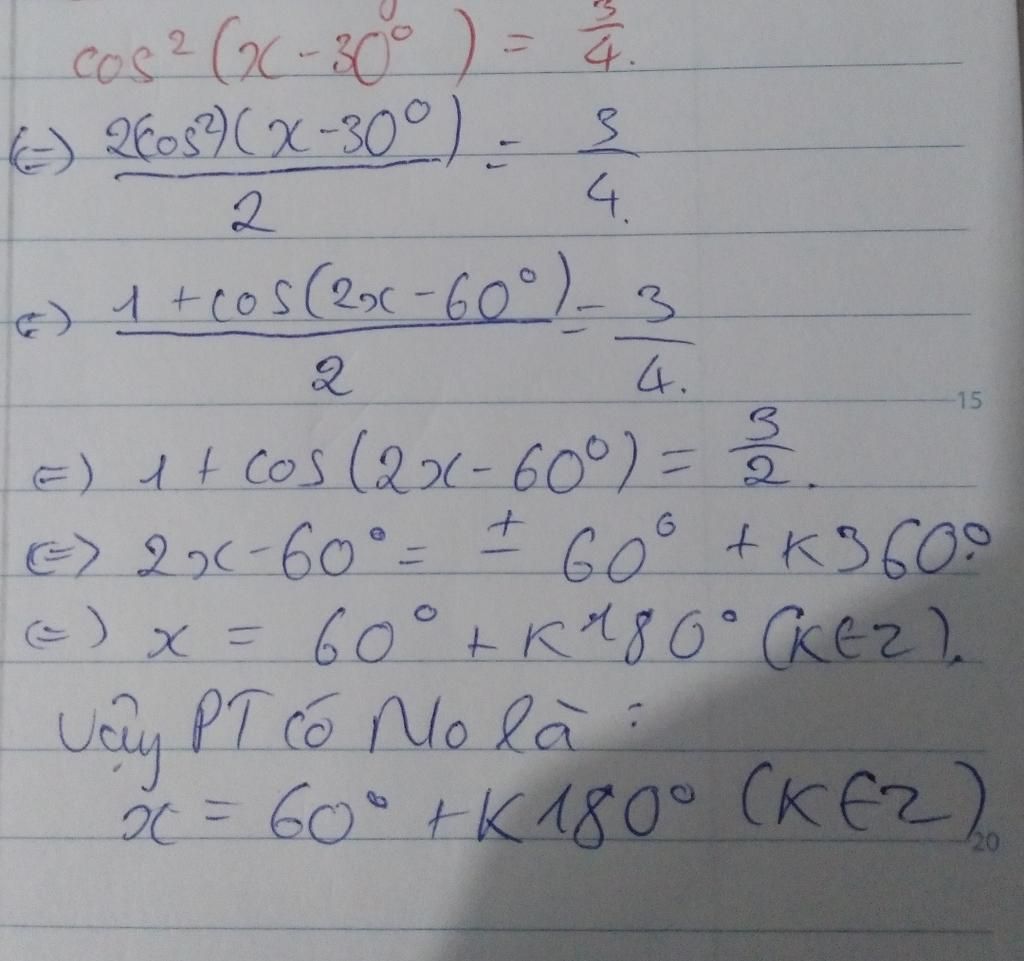 cos²(x-30°) = 3/4.
(=) 2(cos²)(x-30°)/2 = 3/4.
(=) 1+cos(2x-60°)/2 = 3/4.
15
(=) 1+cos(2x-60°) = 3/2.
(=) 2x-60° = ± 60° + K360°
(=) x = 60° + K180° (K∈Z).
Vậy PT có No là:
x = 60° + K180° (K∈Z)
20